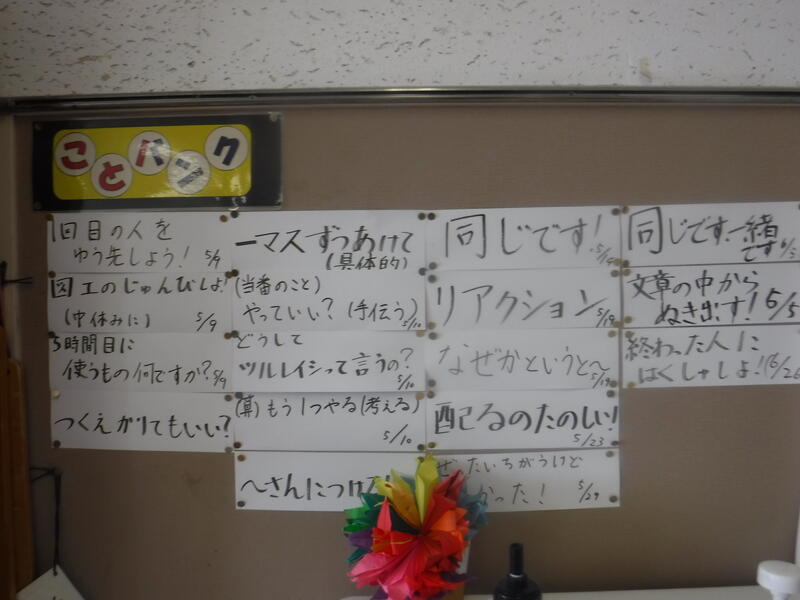 ことバンク
1回目の人を
ゆう先しよう! 5/9
図工のじゅんびしよ!
(中休みに) 5/9
5時間目に
使うもの何ですか? 5/9
つくえかりてもいい?
一マスずつあけて
(具体的)
(当番のこと)
やっていい? (手伝う) 5/10
どうして
ツルレイシって言うの?
5/10
(算) もう1つやる(考える)
5/10
〜さんにつけ
同じです!
リアクション 5/19
なぜかというと〜
5/19
配るのたのしい!
5/23
たいちがうけど
った! 5/29
同じです、一緒
です
文章の中から
ぬき出す! 6/5
終わった人に
はくしゅしよ! 6/26